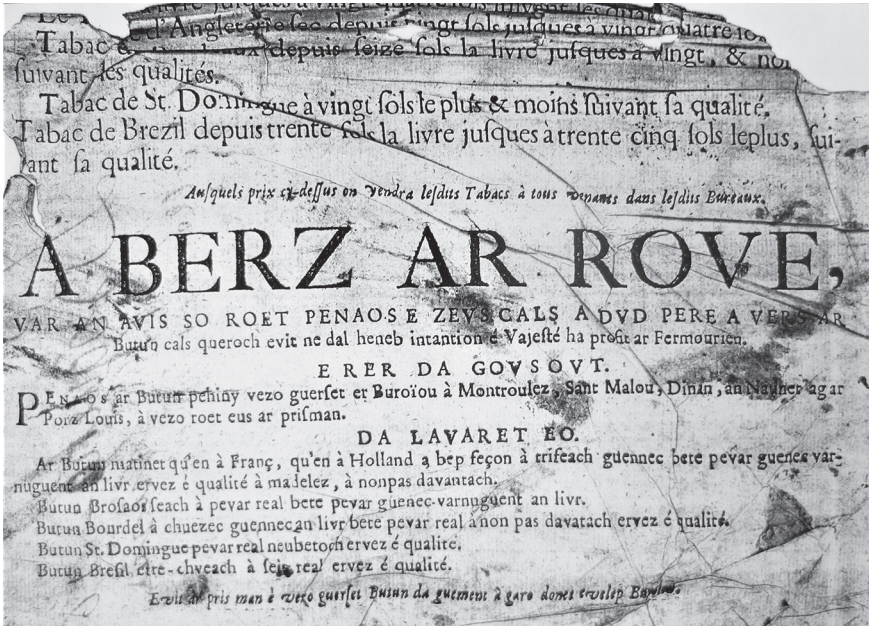 suivent les
d'Angleterre sec depuis vingt sols jusques à vingt quatre
Tabac depuis seize sols la livre jusques à vingt, &
suivant les qualités.
Tabac de St. Domingue à vingt sols le plus & moins suivant sa qualité.
Tabac de Brezil depuis trente sols la livre jusques à trente cinq sols le plus, sui-
ant sa qualité.
Ausquels prix cy-dessus on vendra lesdits Tabacs à tous venants dans lesdits Bureaux.
A BERZ AR ROVE,
VAR AN AVIS SO ROET PENAOS E ZEVS CALS A DVD PERE A VERS AR
Butun cals queroch evit ne dal heneb intantion é Vajesté ha profit ar Fermourien.
E RER DA GOVSOVT.
PENAOS ar Butun pehiny vezo guerset er Buroïou à Montroulez, Sant Malou, Dinan, an Naoner ag ar
Porz Louis, à vezo roet eus ar prisman.
DA LAVARET EO.
Ar Butun matinet qu'en à Franç, qu'en à Holland a bep feçon à trifeach guennec bete pevar guenec var-
nuguent an livr ervez é qualité à madelez, à nonpas davantach.
Butun seach à pevar real bete pevar guenec-varnuguent an livr.
Butun Bourdel à chuezec guennec an livr bete pevar real à non pas davatach ervez é qualité.
Butun St. Domingue pevar real neubetoch ervez é qualité.
Butun Bresil etre-chveach à seis real ervez é qualité.
ar pris man è vezo guerset Butun da guement à garo donet